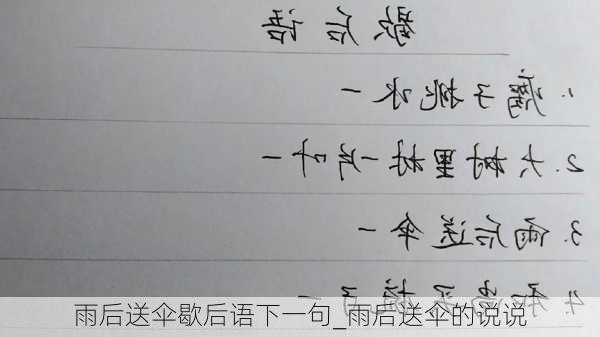 歇后语
1.瘸子挑水一
2.大树里一片叶一
3.雨后送伞一
4.
雨后送伞歇后语下一句_雨后送伞的说说